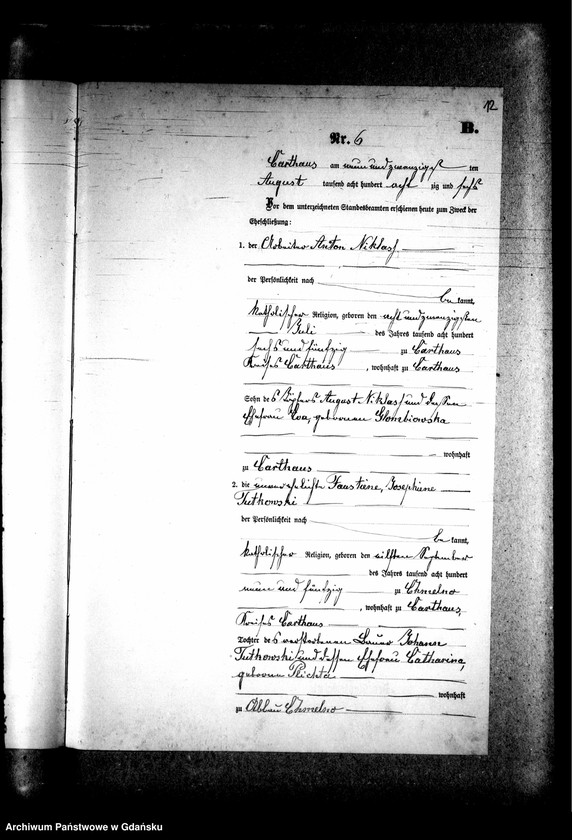 12
B.
Nr. 6
Carthaus am neun und zwanzigst ten
August tausend acht hundert acht zig und sechs
Vor dem unterzeichneten Standesbeamten erschienen heute zum Zweck der
Eheschließung:
1. der Arbeiter Anton Niklas
der Persönlichkeit nach
be kannt,
katholischer Religion, geboren den acht und zwanzigsten
Juli des Jahres tausend acht hundert
sechs und fünfzig zu Carthaus
Kreises Carthaus, wohnhaft zu Carthaus
Sohn des August Niklas und dessen
Ehefrau Eva, geborenen Glombiowska
wohnhaft
zu Carthaus
2. die unverehelichte Faustine, Josephine
Tutkowski
der Persönlichkeit nach
be kannt,
katholischer Religion, geboren den eilften September
des Jahres tausend acht hundert
neun und fünfzig zu Chmelno
, wohnhaft zu Carthaus,
Kreises Carthaus
Tochter des verstorbenen Bauer Johann
Tutkowski und dessen Ehefrau Catharina,
geborenen Plichta
wohnhaft
zu Abbau Chmelno
Archiwum Państwowe w Gdańsku